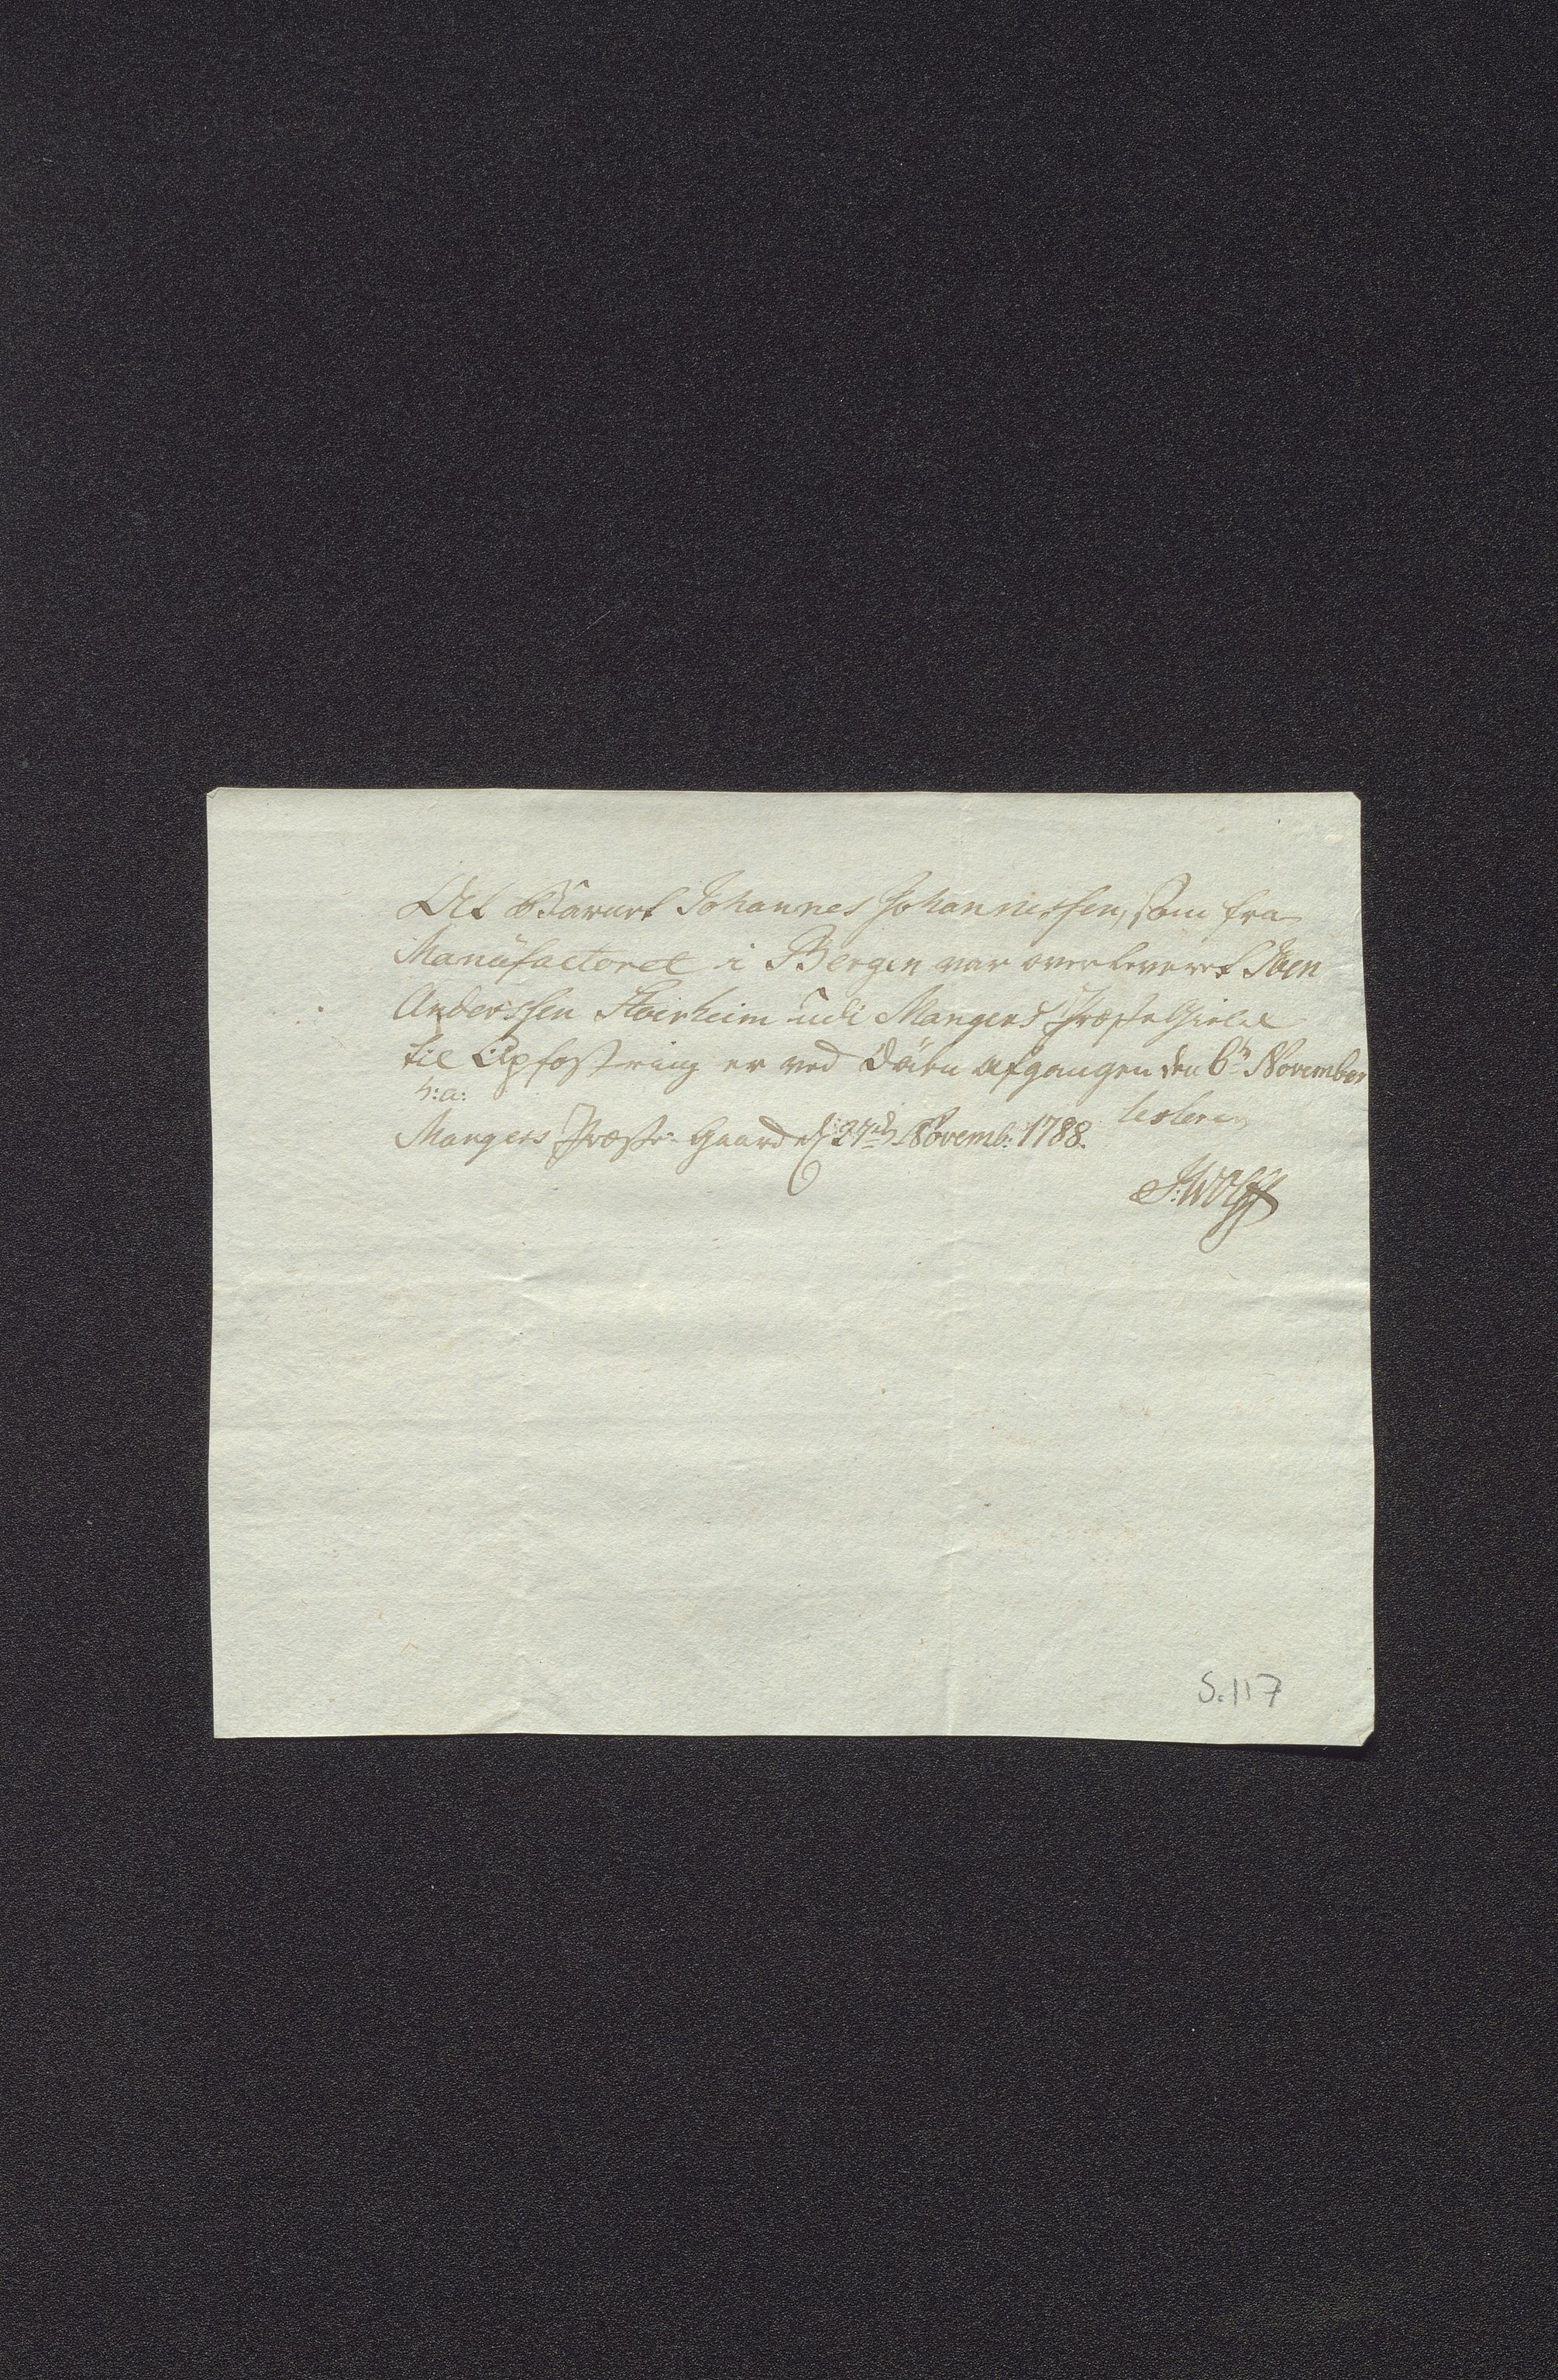 At Barnet Johannes Johannessen, som fra
Manufactoret i Bergen var overleveret Iven
Anderssen Stoirheim udi Mangers Præste Gield
til Opfostring er ved Døden afgangen den 6te November
h: a:
Mangers Præste-Gaard d 27de Novemb: 1788. testerer
J: Wolff
S. 117